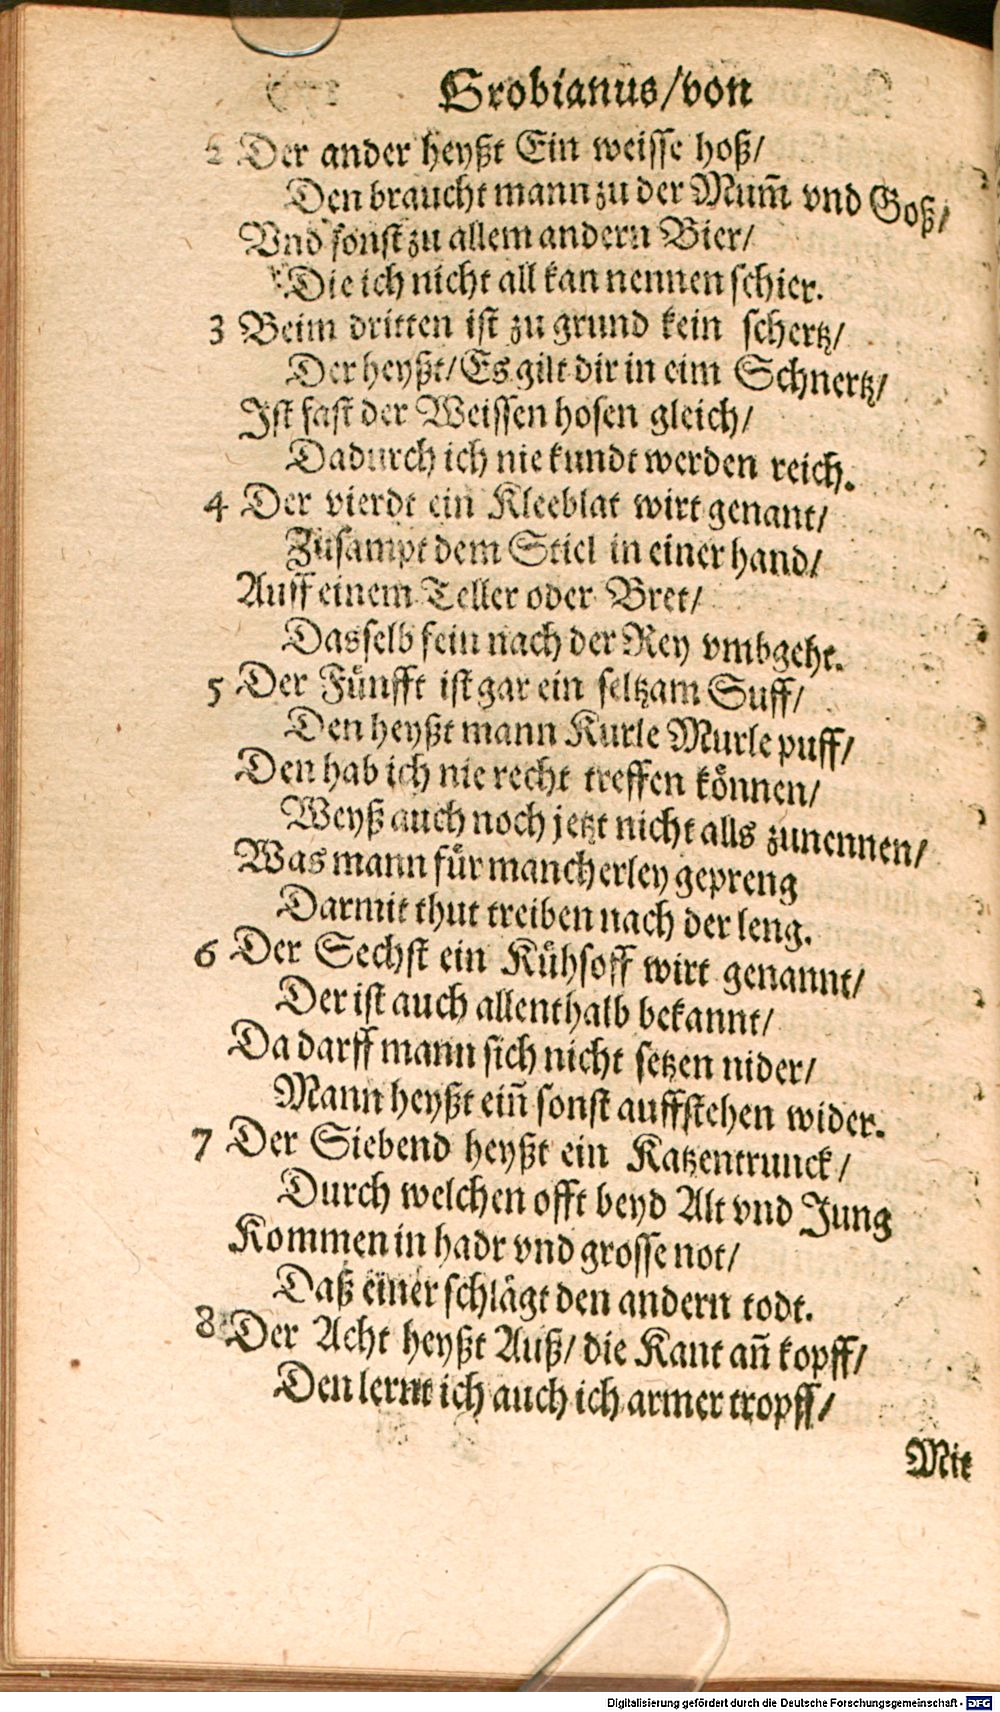 Grobianus/von
2 Der ander heyßt Ein weisse hoß/
Den braucht mann zu der Mum̃ vnd Goß/
Vnd sonst zu allem andern Bier/
Die ich nicht all kan nennen schier.
3 Beim dritten ist zu grund kein schertz/
Der heyßt/Es gilt dir in eim Schnertz/
Ist fast der Weissen hosen gleich/
Dadurch ich nie kundt werden reich.
4 Der vierdt ein Kleeblat wirt genant/
Zůsampt dem Stiel in einer hand/
Auff einem Teller oder Bret/
Dasselb fein nach der Rey vmbgeht.
5 Der Fünfft ist gar ein seltzam Suff/
Den heyßt mann Kurle Murle puff/
Den hab ich nie recht treffen können/
Weyß auch noch jetzt nicht alls zunennen/
Was mann für mancherley gepreng
Darmit thut treiben nach der leng.
6 Der Sechst ein Kühsoff wirt genannt/
Der ist auch allenthalb bekannt/
Da darff mann sich nicht setzen nider/
Mann heyßt eiñ sonst auffstehen wider.
7 Der Siebend heyßt ein Katzentrunck/
Durch welchen offt beyd Alt vnd Jung
Kommen in hadr vnd grosse not/
Daß einer schlägt den andern todt.
8 Der Acht heyßt Auß/ die Kant añ kopff/
Den lernt ich auch ich armer tropff/
Mit
Digitalisierung gefördert durch die Deutsche Forschungsgemeinschaft - DFG